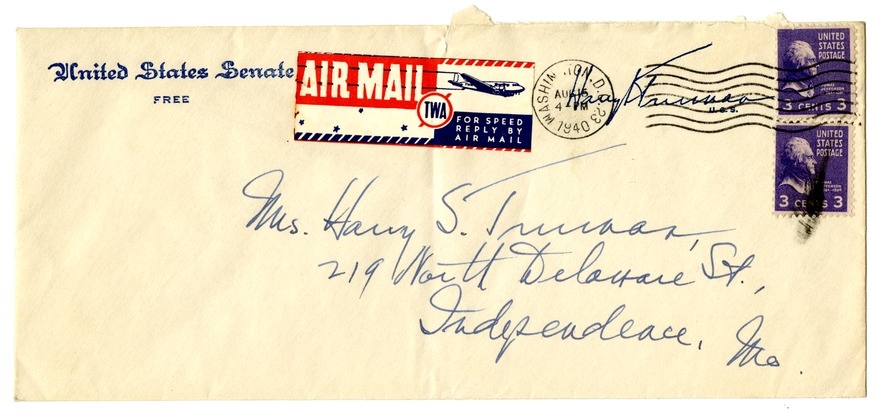 United States Senate
FREE
AIR MAIL
TWA
FOR SPEED
REPLY BY
AIR MAIL
WASHINGTON, D.C. 23
AUG 15
4 PM
1940
Harry S. Truman
U.S.S.
UNITED
STATES
POSTAGE
3 CENTS 3
UNITED
STATES
POSTAGE
THOMAS
JEFFERSON
3 CENTS 3
Mrs. Harry S. Truman,
219 North Delaware St.,
Independence, Mo.